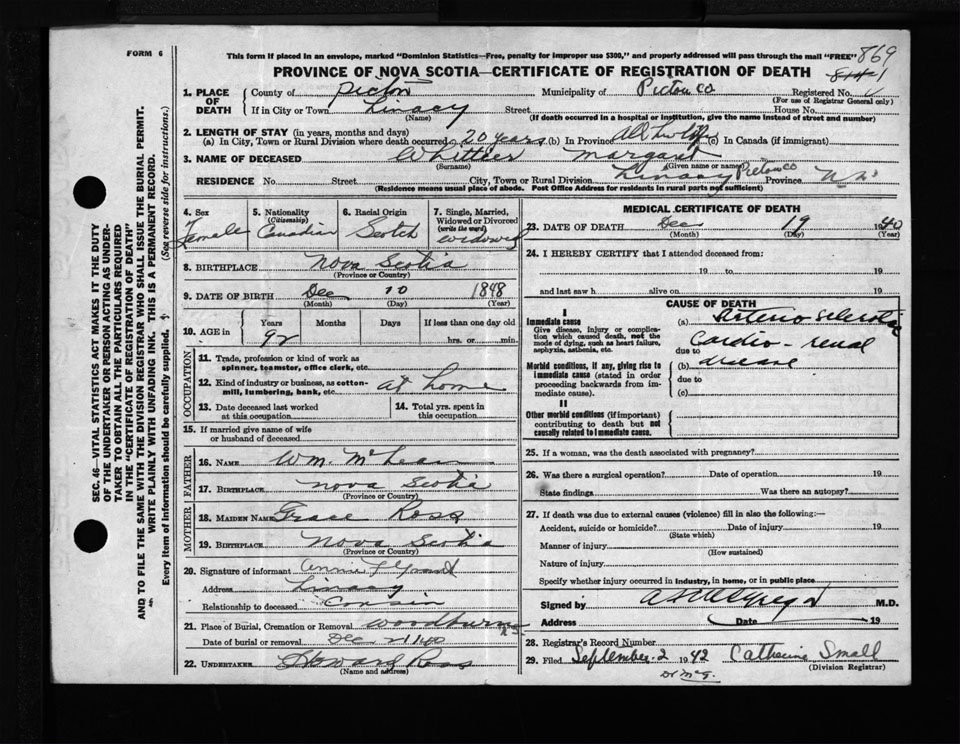 FORM 6
This form if placed in an envelope, marked "Dominion Statistics—Free, penalty for improper use $300," and properly addressed will pass through the mail "FREE" 869
PROVINCE OF NOVA SCOTIA—CERTIFICATE OF REGISTRATION OF DEATH
1. PLACE OF DEATH County of Pictou Municipality of Pictou Co Registered No.
(For use of Registrar General only)
If in City or Town Linacy Street House No.
(Name) (If death occurred in a hospital or institution, give the name instead of street and number)
2. LENGTH OF STAY (in years, months and days)
(a) In City, Town or Rural Division where death occurred 20 years (b) In Province All her life (c) In Canada (if immigrant)
3. NAME OF DECEASED Whittier Margaret
(Surname) (Given name or names)
RESIDENCE No. Street City, Town or Rural Division Linacy Pictou Co Province N.S.
(Residence means usual place of abode. Post Office Address for residents in rural parts not sufficient)
SEC. 46—VITAL STATISTICS ACT MAKES IT THE DUTY
OF THE UNDERTAKER OR PERSON ACTING AS UNDER-
TAKER TO OBTAIN ALL THE PARTICULARS REQUIRED
IN THE "CERTIFICATE OF REGISTRATION OF DEATH"
AND TO FILE THE SAME WITH THE DIVISION REGISTRAR WHO SHALL ISSUE THE BURIAL PERMIT.
WRITE PLAINLY WITH UNFADING INK. THIS IS A PERMANENT RECORD.
Every item of information should be carefully supplied. (See reverse side for instructions.)
4. Sex
Female
5. Nationality
(Citizenship)
Canadian
6. Racial Origin
Scotch
7. Single, Married,
Widowed or Divorced
(write the word)
widowed
8. BIRTHPLACE Nova Scotia
(Province or Country)
9. DATE OF BIRTH Dec 10 1848
(Month) (Day) (Year)
10. AGE in Years Months Days If less than one day old
92 hrs. or min.
OCCUPATION
11. Trade, profession or kind of work as
spinner, teamster, office clerk, etc.
12. Kind of industry or business, as cotton-
mill, lumbering, bank, etc. at home
13. Date deceased last worked
at this occupation
14. Total yrs. spent in
this occupation
15. If married give name of wife
or husband of deceased
FATHER
16. NAME Wm. McLean
17. BIRTHPLACE Nova Scotia
(Province or Country)
MOTHER
18. MAIDEN NAME Grace Ross
19. BIRTHPLACE Nova Scotia
(Province or Country)
20. Signature of informant Annie Grant
Address Linacy
Relationship to deceased Cousin
21. Place of Burial, Cremation or Removal Woodburn
Date of burial or removal Dec 21/40
22. UNDERTAKER Howard Ross
(Name and address)
MEDICAL CERTIFICATE OF DEATH
23. DATE OF DEATH Dec 19 1940
(Month) (Day) (Year)
24. I HEREBY CERTIFY that I attended deceased from:
19 to 19
and last saw h alive on 19
CAUSE OF DEATH
I
Immediate cause (a) Arterio sclerotic
Give disease, injury or complica-
tion which caused death, not the
mode of dying, such as heart failure,
asphyxia, asthenia, etc.
Cardio-renal
due to
Morbid conditions, if any, giving rise to
immediate cause (stated in order
proceeding backwards from im-
mediate cause).
(b) disease
due to
(c)
II
Other morbid conditions (if important)
contributing to death but not
causally related to immediate cause.
25. If a woman, was the death associated with pregnancy?
26. Was there a surgical operation? Date of operation 19
State findings Was there an autopsy?
27. If death was due to external causes (violence) fill in also the following:—
Accident, suicide or homicide? Date of injury 19
(State which)
Manner of injury
(How sustained)
Nature of injury
Specify whether injury occurred in industry, in home, or in public place
Signed by M.D.
Address Date 19
28. Registrar's Record Number
29. Filed September 2 1942 Catherine Small
(Division Registrar)